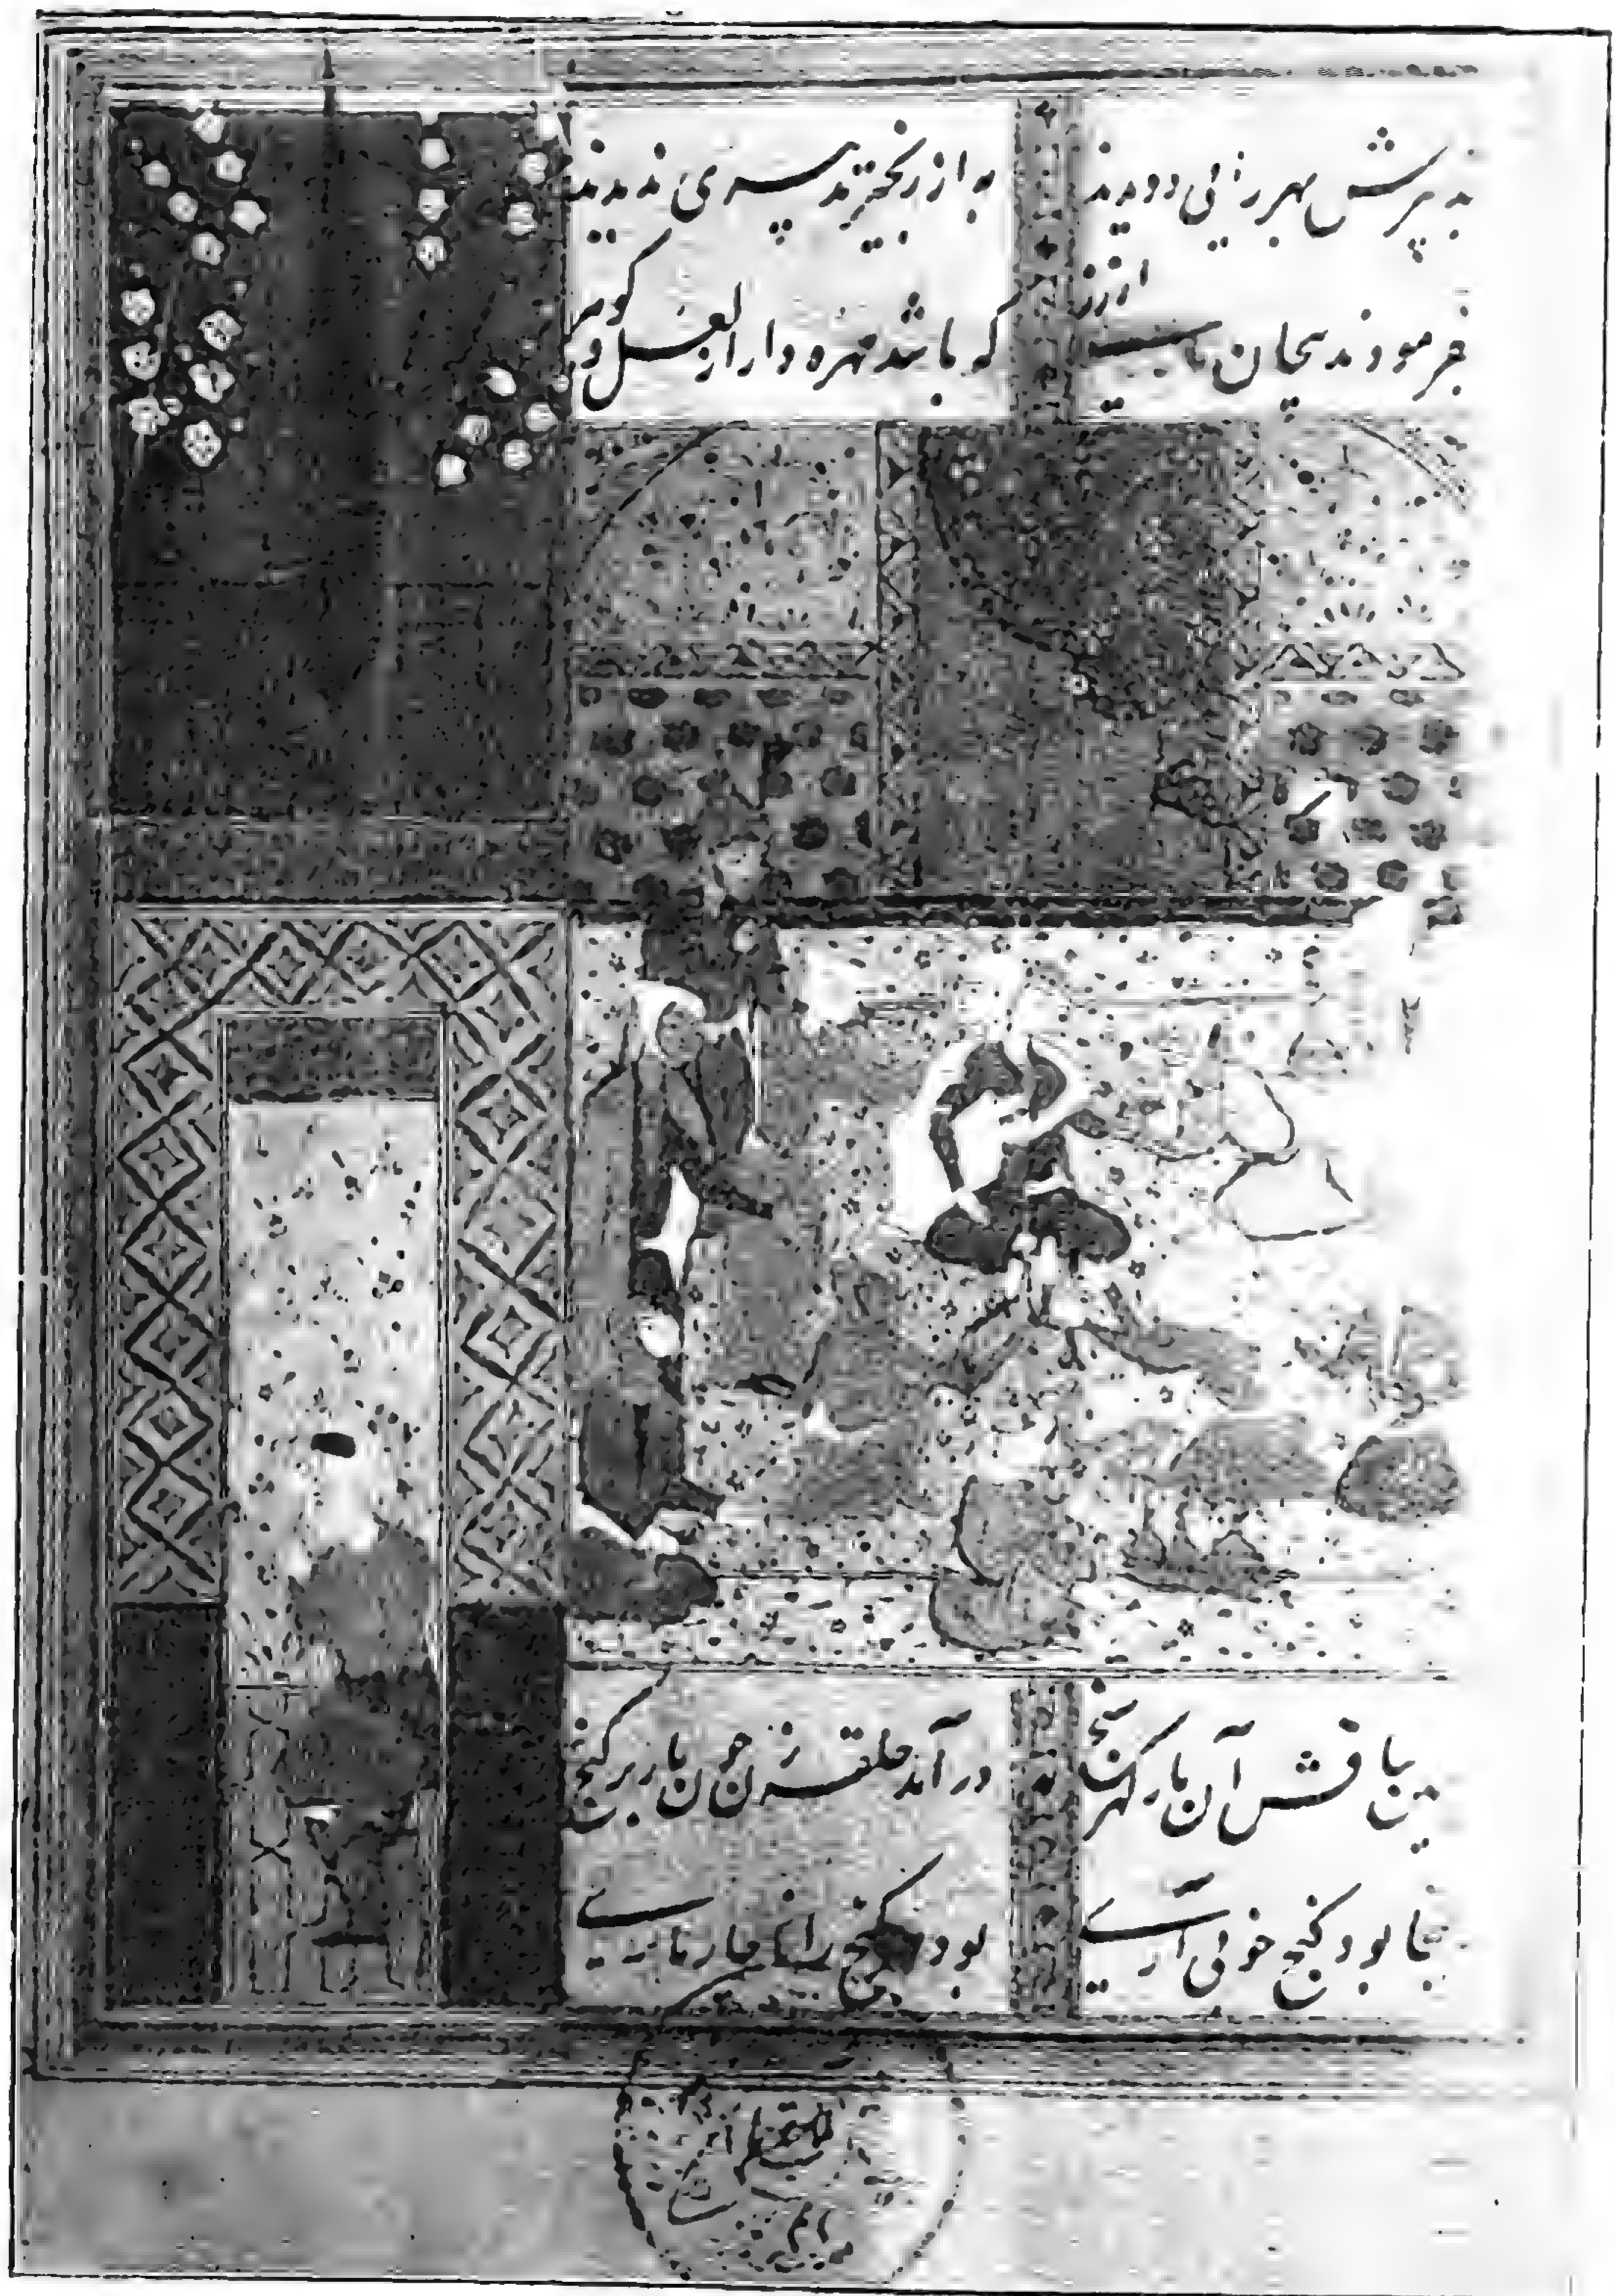 تدبیرش بهر رائی دویدند به از زنجیر تدبیری ندیدند
فرمودند بیجان ماری از زر که باشد مهره دار از لعل و گوهر
ین ساقش آن مار گهر سنج در آمد حلقه زن چون مار بر گنج
یخا بود گنج خوبی آری بود هر گنج را ناچار ماری